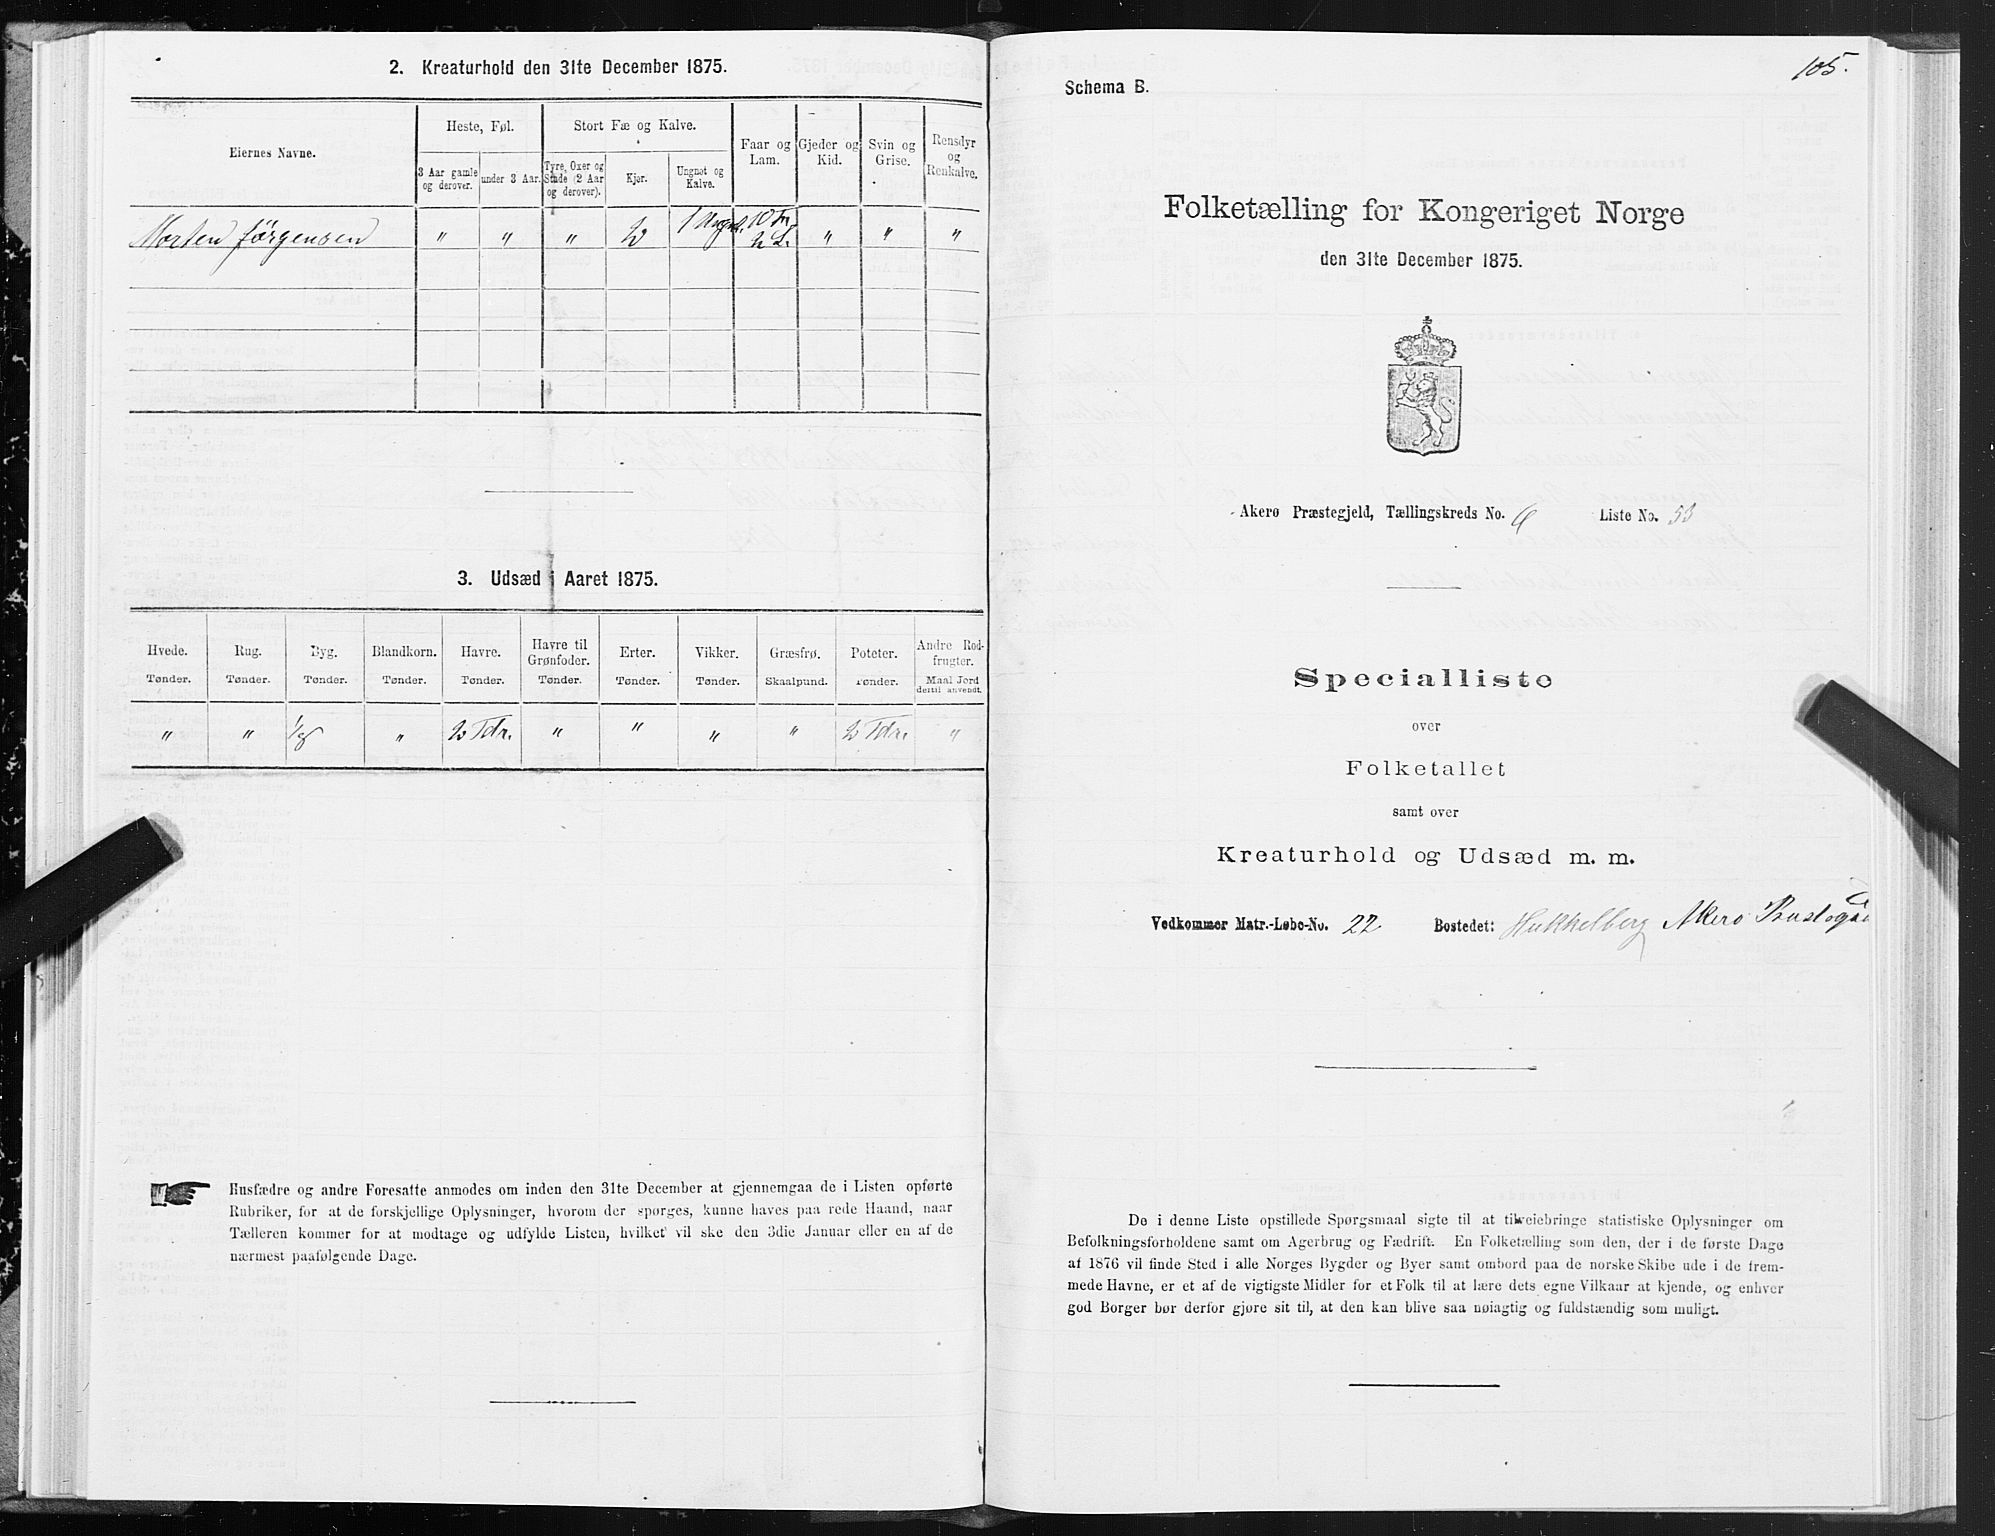 2. Kreaturhold den 31te December 1875.
Eiernes Navne.
Heste, Føl.
Stort Fæ og Kalve.
Faar og Lam.
Gjeder og Kid.
Svin og Grise.
Rensdyr og Renkalve.
3 Aar gamle og derover.
under 3 Aar.
Tyre, Oxer og Stude (2 Aar og derover).
Kjør.
Ungnøt og Kalve.
Morten Jørgensen " " " 2 1 Ungn. 10 Fr. 2 L. " " "
3. Udsæd i Aaret 1875.
Hvede. Rug. Byg. Blandkorn. Havre. Havre til Grønfoder. Erter. Vikker. Græsfrø. Poteter. Andre Rodfrugter.
Tønder. Tønder. Tønder. Tønder. Tønder. Tønder. Tønder. Tønder. Skaalpund. Tønder. Maal Jord dertil anvendt.
" " 1/8 " 2 Tdr. " " " " 2 Tdr. "
Husfædre og andre Foresatte anmodes om inden den 31te December at gjennemgaa de i Listen opførte
Rubriker, for at de forskjellige Oplysninger, hvorom der spørges, kunne haves paa rede Haand, naar
Tælleren kommer for at modtage og udfylde Listen, hvilket vil ske den 3die Januar eller en af de
nærmest paafølgende Dage.
105.
Schema B.
Folketælling for Kongeriget Norge
den 31te December 1875.
Akerø Præstegjeld, Tællingskreds No. 6 Liste No. 53
Specialliste
over
Folketallet
samt over
Kreaturhold og Udsæd m. m.
Vedkommer Matr.-Løbe-No. 22 Bostedet: Hukkelberg Akerø
De i denne Liste opstillede Spørgsmaal sigte til at tilveiebringe statistiske Oplysninger om
Befolkningsforholdene samt om Agerbrug og Fædrift. En Folketælling som den, der i de første Dage
af 1876 vil finde Sted i alle Norges Bygder og Byer samt ombord paa de norske Skibe ude i de frem-
mede Havne, er et af de vigtigste Midler for et Folk til at lære dets egne Vilkaar at kjende, og enhver
god Borger bør derfor gjøre sit til, at den kan blive saa nøiagtig og fuldstændig som muligt.